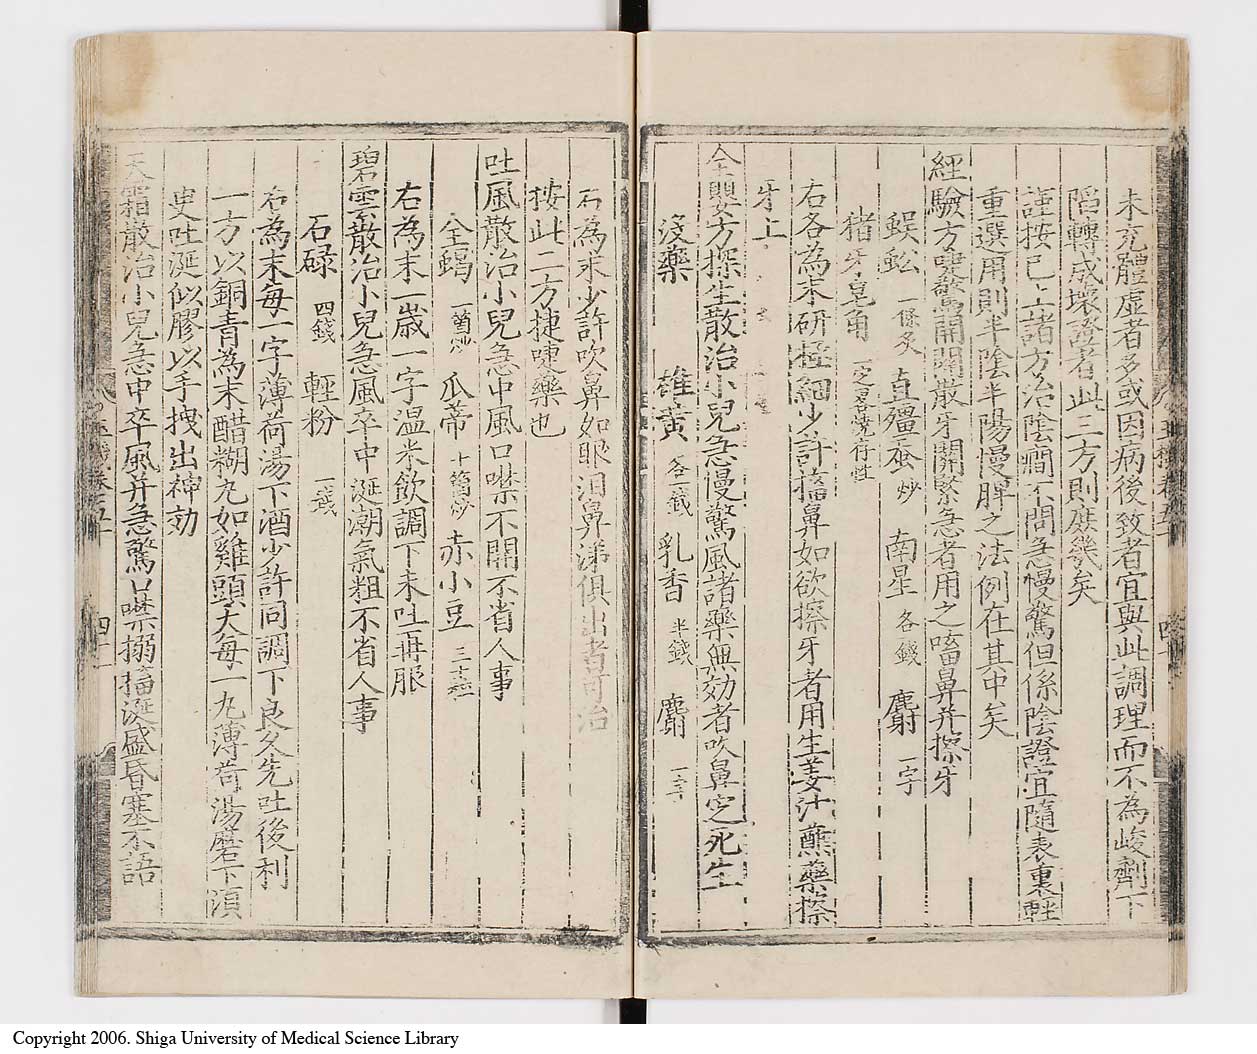 未充體虛者多或因病後致者宜與此調理而不為峻劑下
陷轉成壞證者此三方則庶幾矣
謹按已上諸方治陰癎不問急慢驚但係陰證宜隨表裏輕
重選用則半陰半陽慢脾之法例在其中矣
經驗方嚏驚開關散牙關緊急者用之㗜鼻并擦牙
蜈蚣 一條炙 直殭蚕 炒 南星 各一錢 麝 一字
猪牙皂角 一定畧燒存性
右各為末研極細少許搐鼻如欲擦牙者用生姜汁蘸藥擦
牙上
全嬰方探生散治小兒急慢驚風諸藥無効者吹鼻定死生
沒藥 雄黃 各一錢 乳香 半錢 麝 一字
右為末少許吹鼻如眼泪鼻涕俱出者可治
按此二方捷嚏藥也
吐風散治小兒急中風口噤不關不省人事
全蝎 一箇炒 瓜蒂 十箇炒 赤小豆 三十粒
右為末一歲一字温米飲調下未吐再服
碧雲散治小兒急風卒中涎潮氣粗不省人事
石碌 四錢 輕粉 一錢
右為末每一字薄荷湯下酒少許同調下良久先吐後利
一方以銅青為末醋糊丸如雞頭大每一丸薄荷湯磨下須
臾吐涎似膠以手拽出神効
霜散治小兒急中卒風并急驚口噤搦搐涎盛昏塞不語